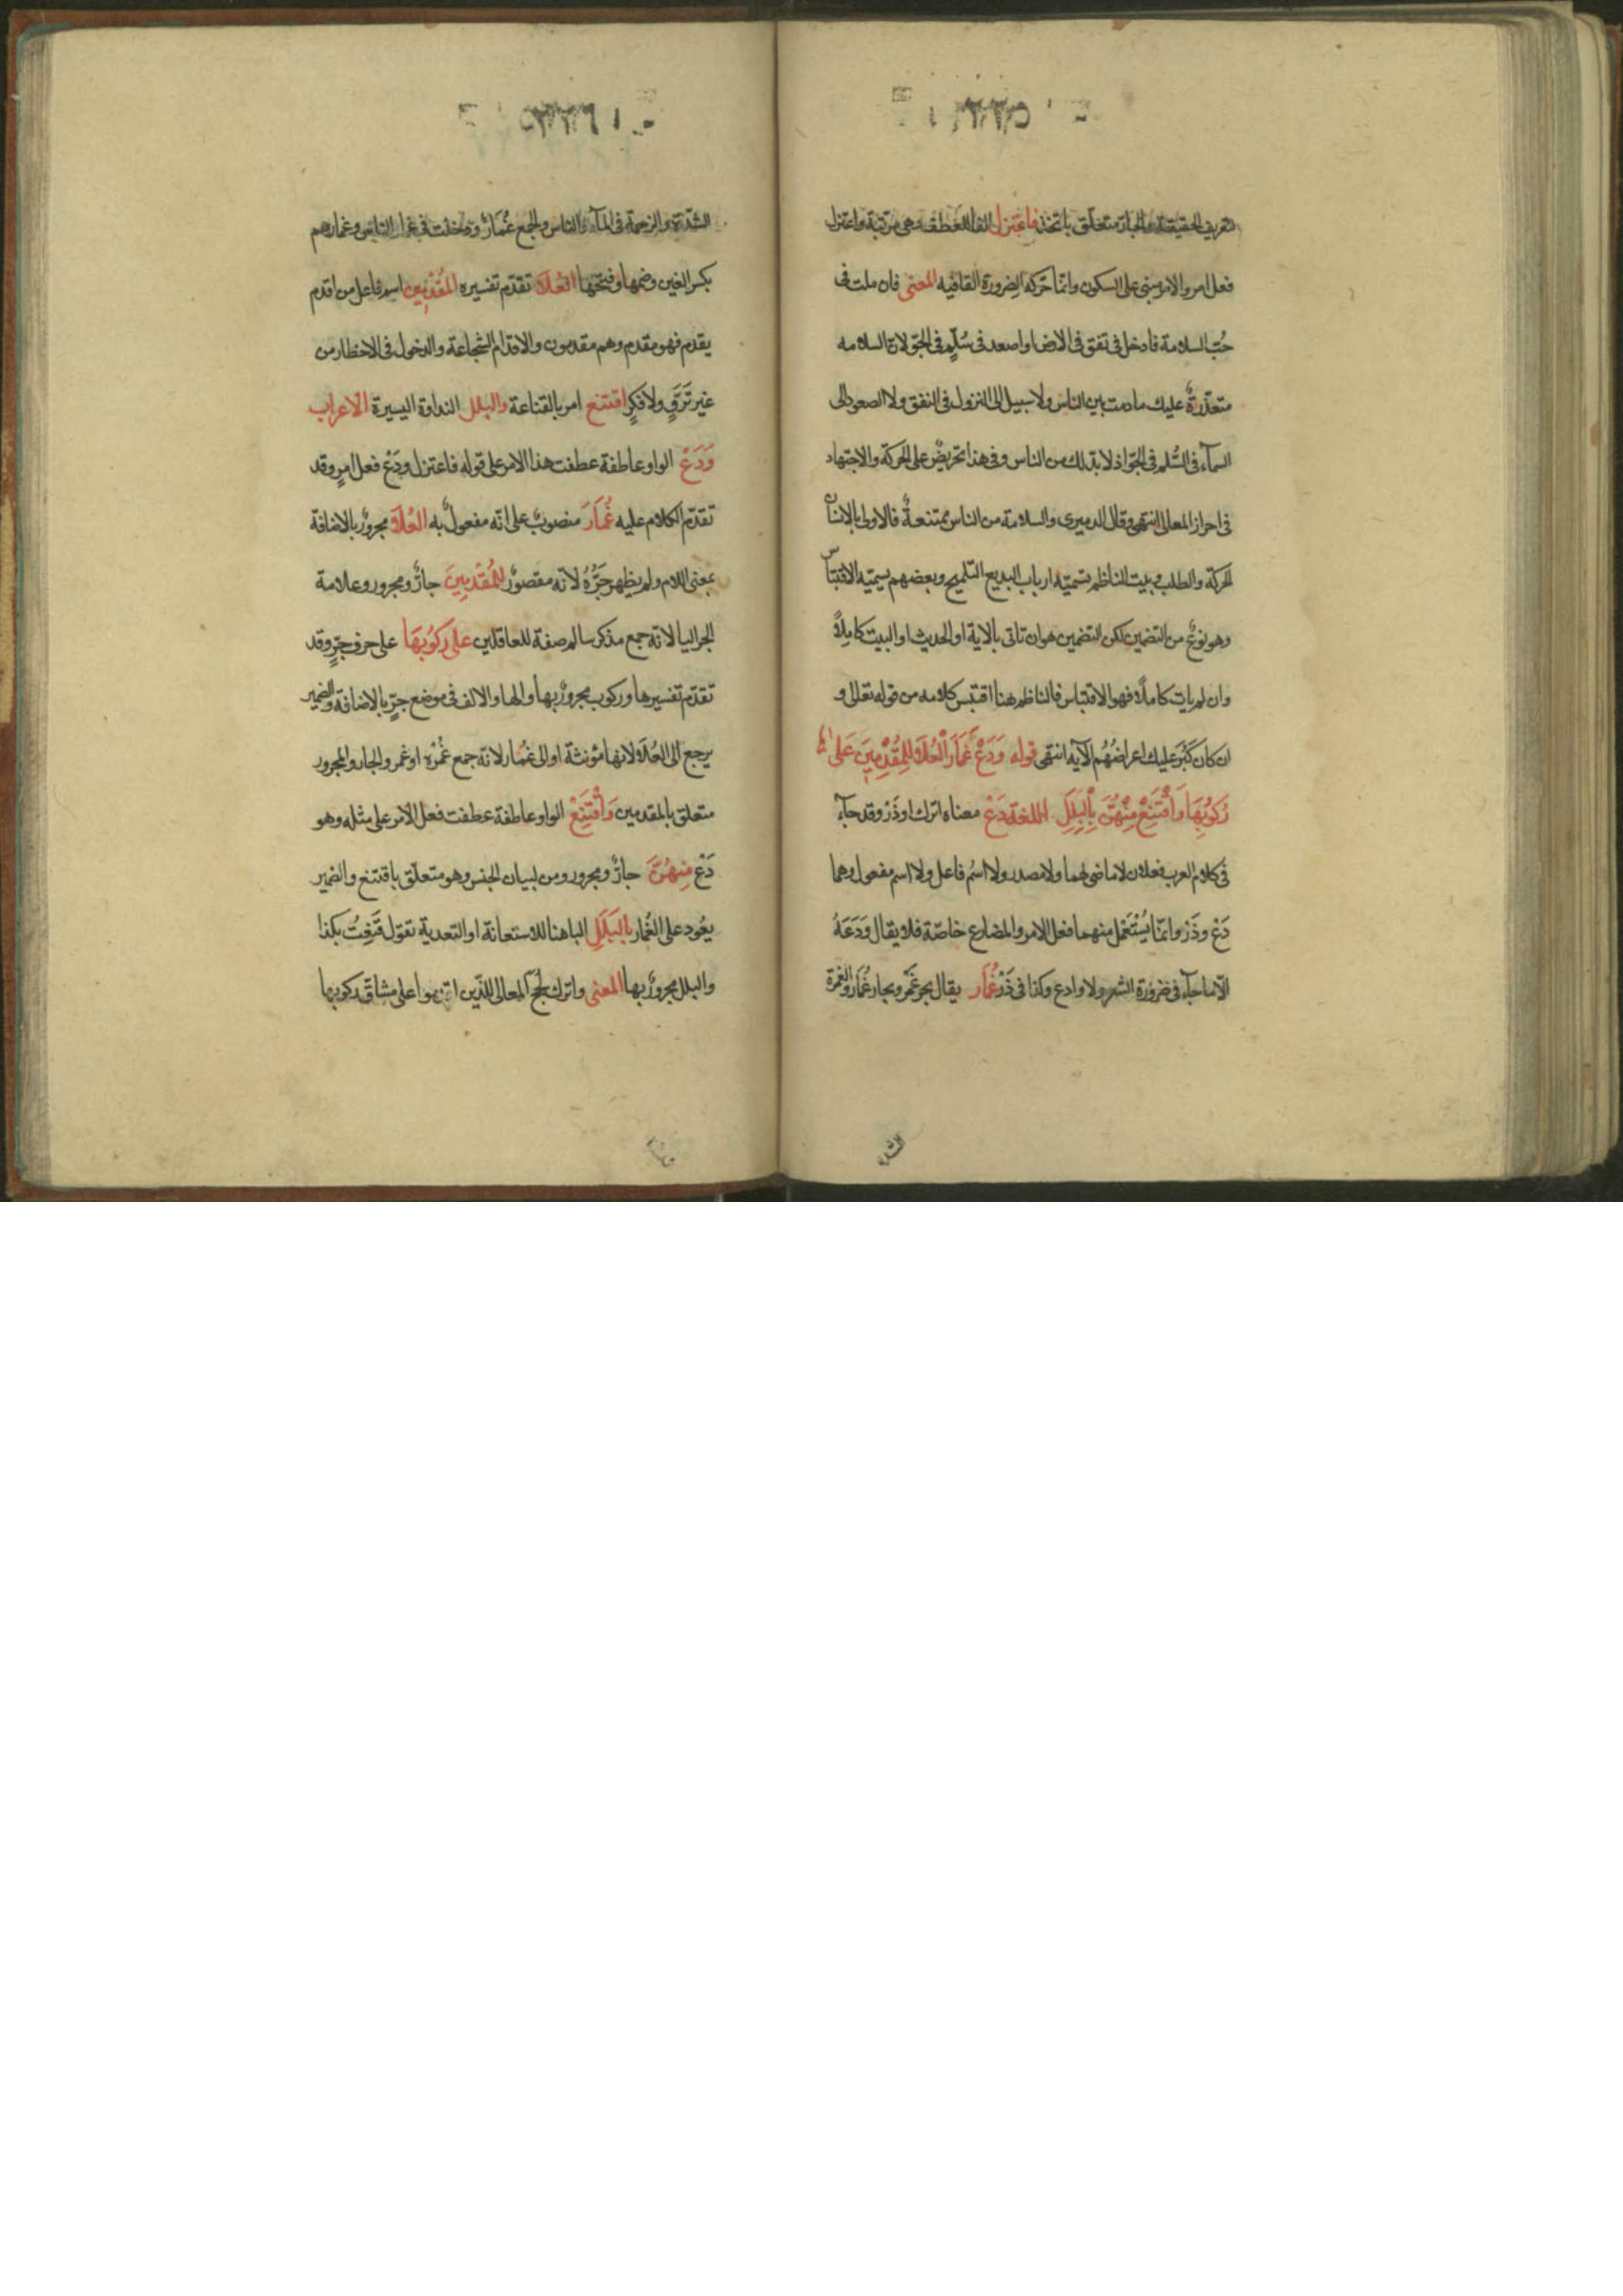 لتعريف الحقيقة والجار متعلق باتخذ فاعتزل الفا للعطف وهى مرتبة واعتزل
فعل امر والامر مبنى على السكون وانما حركه لضرورة القافيه المعنى فان ملت فى
حُبّ السلامة فادخل فى نفق فى الارض او اصعد فى سُلّمٍ فى الجوّ لان السلامه
متعذّرةٌ عليك مادمت بين الناس ولا سبيل الى النزول فى النفق ولا الصعود الى
السمآء فى السُّلم فى الجوّ اذ لا بدّ لك من الناس وفى هذا تحريضٌ على الحركة والاجتهاد
فى احراز المعالى انتهى وقال الدميرى والسلامة من الناس ممتنعةٌ فالاولى بالانسان
الحركة والطلب وبيت الناظم تسميّه ارباب البديع التلميح وبعضهم يسميّه الاقتباس
وهو نوعٌ من التضمين لكن التضمين هو ان تاتى بالاية او الحديث او البيت كاملاً
وان لم يات كاملاً فهو الاقتباس فالناظم هنا اقتبس كلامه من قوله تعالى و
ان كان كَبُرَ عليك اعراضُهُم الآيه انتهى قوله وَدَعْ غمَارَ الْعُلَا لِلمُقْدِمِينَ عَلى
رُكوُبِهَا وَاقْتَنِعْ مِنْهُنَّ بِالْبَلَلِ اللغة دَعْ معناه اترك او ذَرْ وقد جآء
فى كلام العرب فعلان لا ماضى لهما ولا مصدر ولا اسُم فاعل ولا اسم مفعول وهما
دَعْ وذَرْ وانما يُسْتَعْمل منهما فعل الامر والمضارع خاصّة فلا يقال وَدَعَهُ
الّا ما جآء فى ضرورة الشعر ولا وادع وكذا فى ذَرْ غُمار يقال بحر غَمْر وبحار غُمَار والغمرة
الشدة
الشدّة والزحمة فى المآء والناس والجمع غُمَارٌ ودخلت فى غمار الناس وغمارهم
بكسر الغين وضمها وفتحها العُلَا تقدّم تفسيره المُقْدِمِين اسم فاعل من اقدم
يقدم فهو مقدم وهم مقدمون والاقدام الشجاعة والدخول فى الاخطار من
غير تَرَوٍّ ولا فكرٍ اقتنع امر بالقناعة والبلل النداوة اليسيرة الاعراب
وَدَعْ الواو عاطفة عطفت هذا الامر على قوله فاعتزل ودَعْ فعل امرٍ وقد
تقدّم الكلام عليه غُمَارَ منصوبٌ على انه مفعولٌ به العُلَا مجرورٌ بالاضافة
بمعنى اللام ولم يظهر جَرُّهُ لانه مقصورٌ للمُقْدِمِينَ جارٌّ ومجرور وعلامة
الجر اليا لانه جمع مذكر سالم صفة للعاقلين على رَكوُبِهَا على حرف جرٍّ وقد
تقدّم تفسيرها وركوب مجرورٌ بها والها والالف فى موضع جرٍّ بالاضافة والضمير
يرجع الى العُلَا لانها مؤنثة او الى غُمار لانه جمع غُمْره او غمر والجار والمجرور
متعلق بالمقدمين وَاقْتَنِعْ الواو عاطفة عطفت فعل الامر على مثله وهو
دَعْ مِنهُنَّ جارٌّ ومجرور ومن لبيان الجنس وهو متعلّق باقتنع والضمير
يعُود على الغُمار بالبَلَلِ الباهنا للاستعانة او التعدية تقول
والبلل مجرورٌ بها المعنى واترك لُجَجَ المعالى للذين على مشاق ركوبها